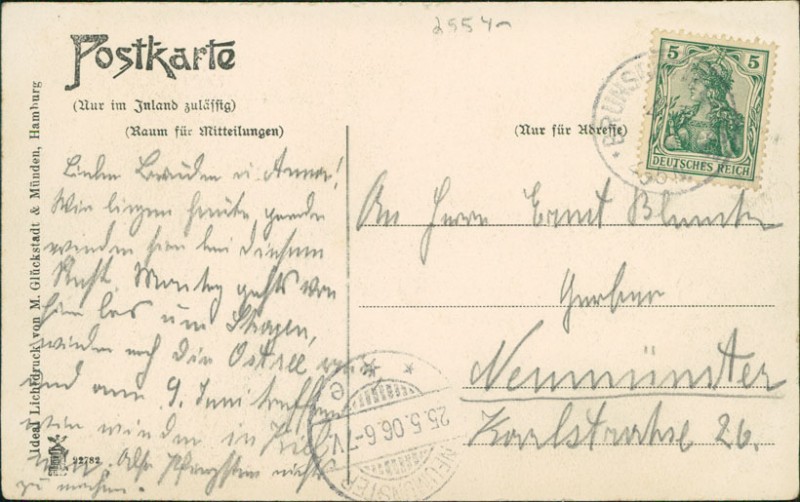 2554
Postkarte
(Nur im Inland zulässig)
(Raum für Mitteilungen)
(Nur für Adresse)
5 5
DEUTSCHES REICH
BRUNSB
Ideal Lichtdruck von M. Glückstadt & Münden, Hamburg
22782
Lieber Bruder u. Anna!
Wir liegen heute
wieder hier bei diesem
Montag gehts von
hier los um Skagen,
wieder nach die Ostsee
und am 9. Juni treffen
wir wieder in Kiel
Also Pfingsten nichts
zu machen.
An Herrn Ernst
Gerber
Neumünster
Karlstraße 26.
25.5.06.6-7V.
NEUMÜNSTER